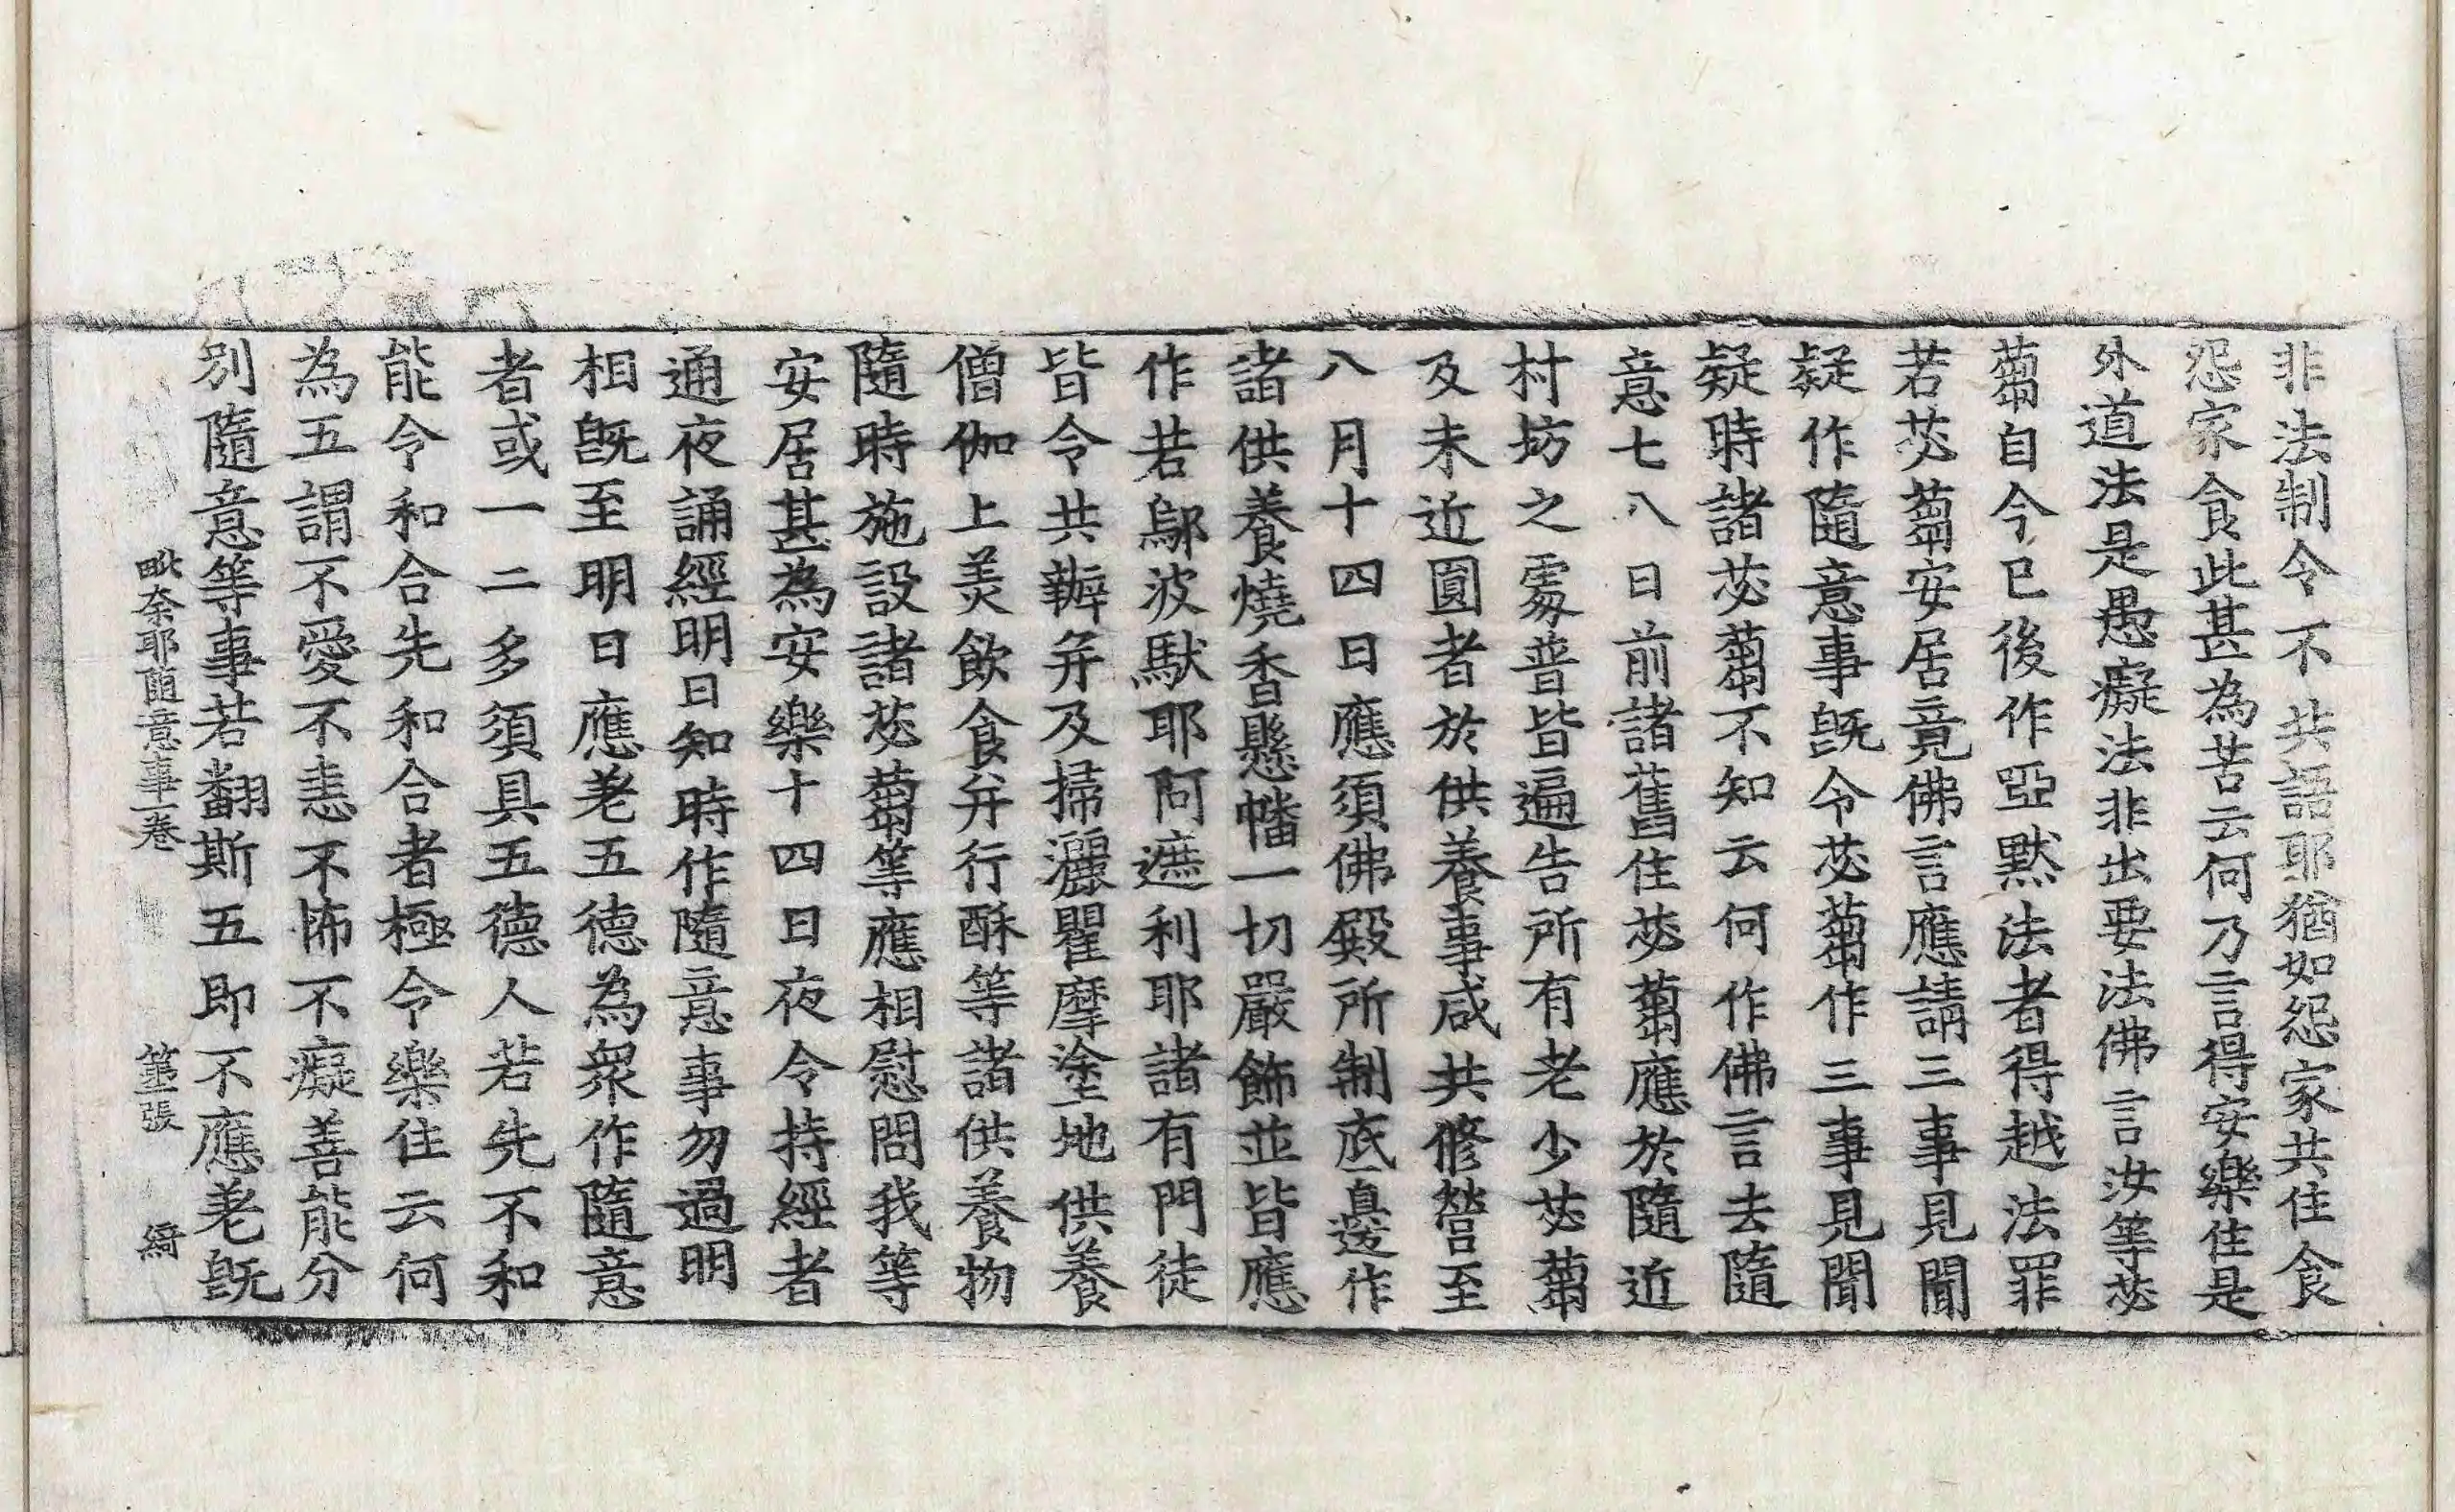 非法制令不共語耶猶如怨家共住食
怨家食此甚為苦云何乃言得安樂住是
外道法是愚癡法非出要法佛言汝等苾
蒭自今已後作瘂默法者得越法罪
若苾蒭安居竟佛言應請三事見聞
疑作隨意事旣令苾蒭作三事見聞
疑時諸苾蒭不知云何作佛言去隨
意七八日前諸舊住苾蒭應於隨近
村坊之處普皆遍告所有老少苾蒭
及未近圓者於供養事咸共修營至
八月十四日應須佛殿所制底一邊作
諸供養燒香懸幡一切嚴飾並皆應
作若鄔波馱耶阿遮利耶諸有門徒
皆令共辦弁及掃灑瞿摩塗地供養
僧伽上美飲食弁行酥等諸供養物
隨時施設諸苾蒭等應相慰問我等
安居甚為安樂十四日夜令持經者
通夜誦經明日知時作隨意事勿過明
相旣至明日應差五德為衆作隨意
者或一二多須具五德人若先不和
能令和合先和合者極令樂住云何
為五謂不愛不恚不怖不癡善能分
別隨意等事若翻斯五即不應差旣
毗奈耶随意事一卷 第三張 綺